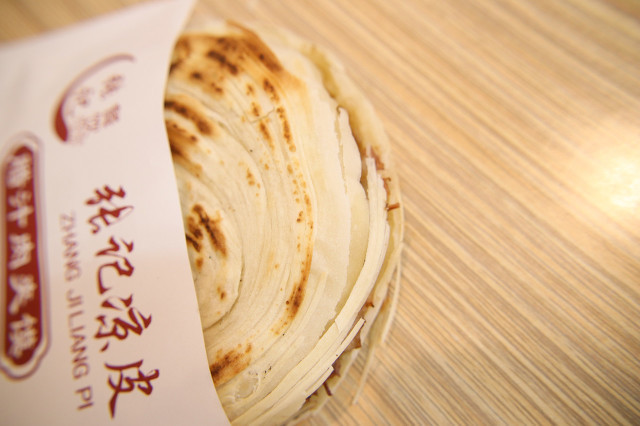 张记凉皮
ZHANG JI LIANG PI
腊汁肉夹馍